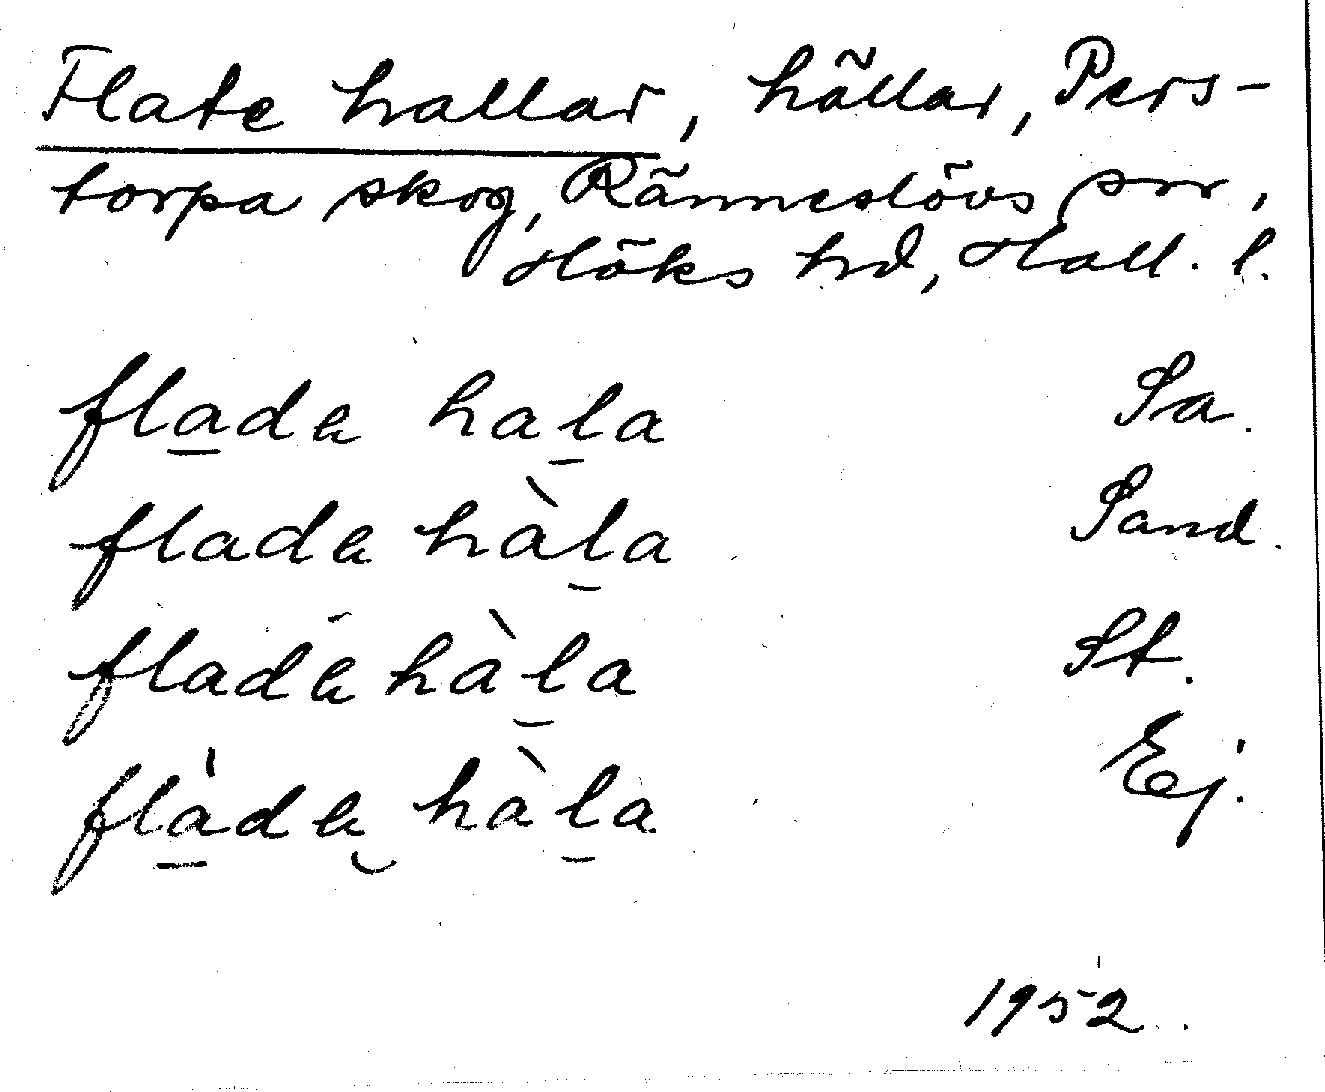 Flate hallar, hällar, Pers-
torpa skog, Ränneslövs snr,
Höks hd, Hall. l.
flada hala Sa.
flada hàla Sand.
flada hàla St.
flàda hàla Ej.
1952